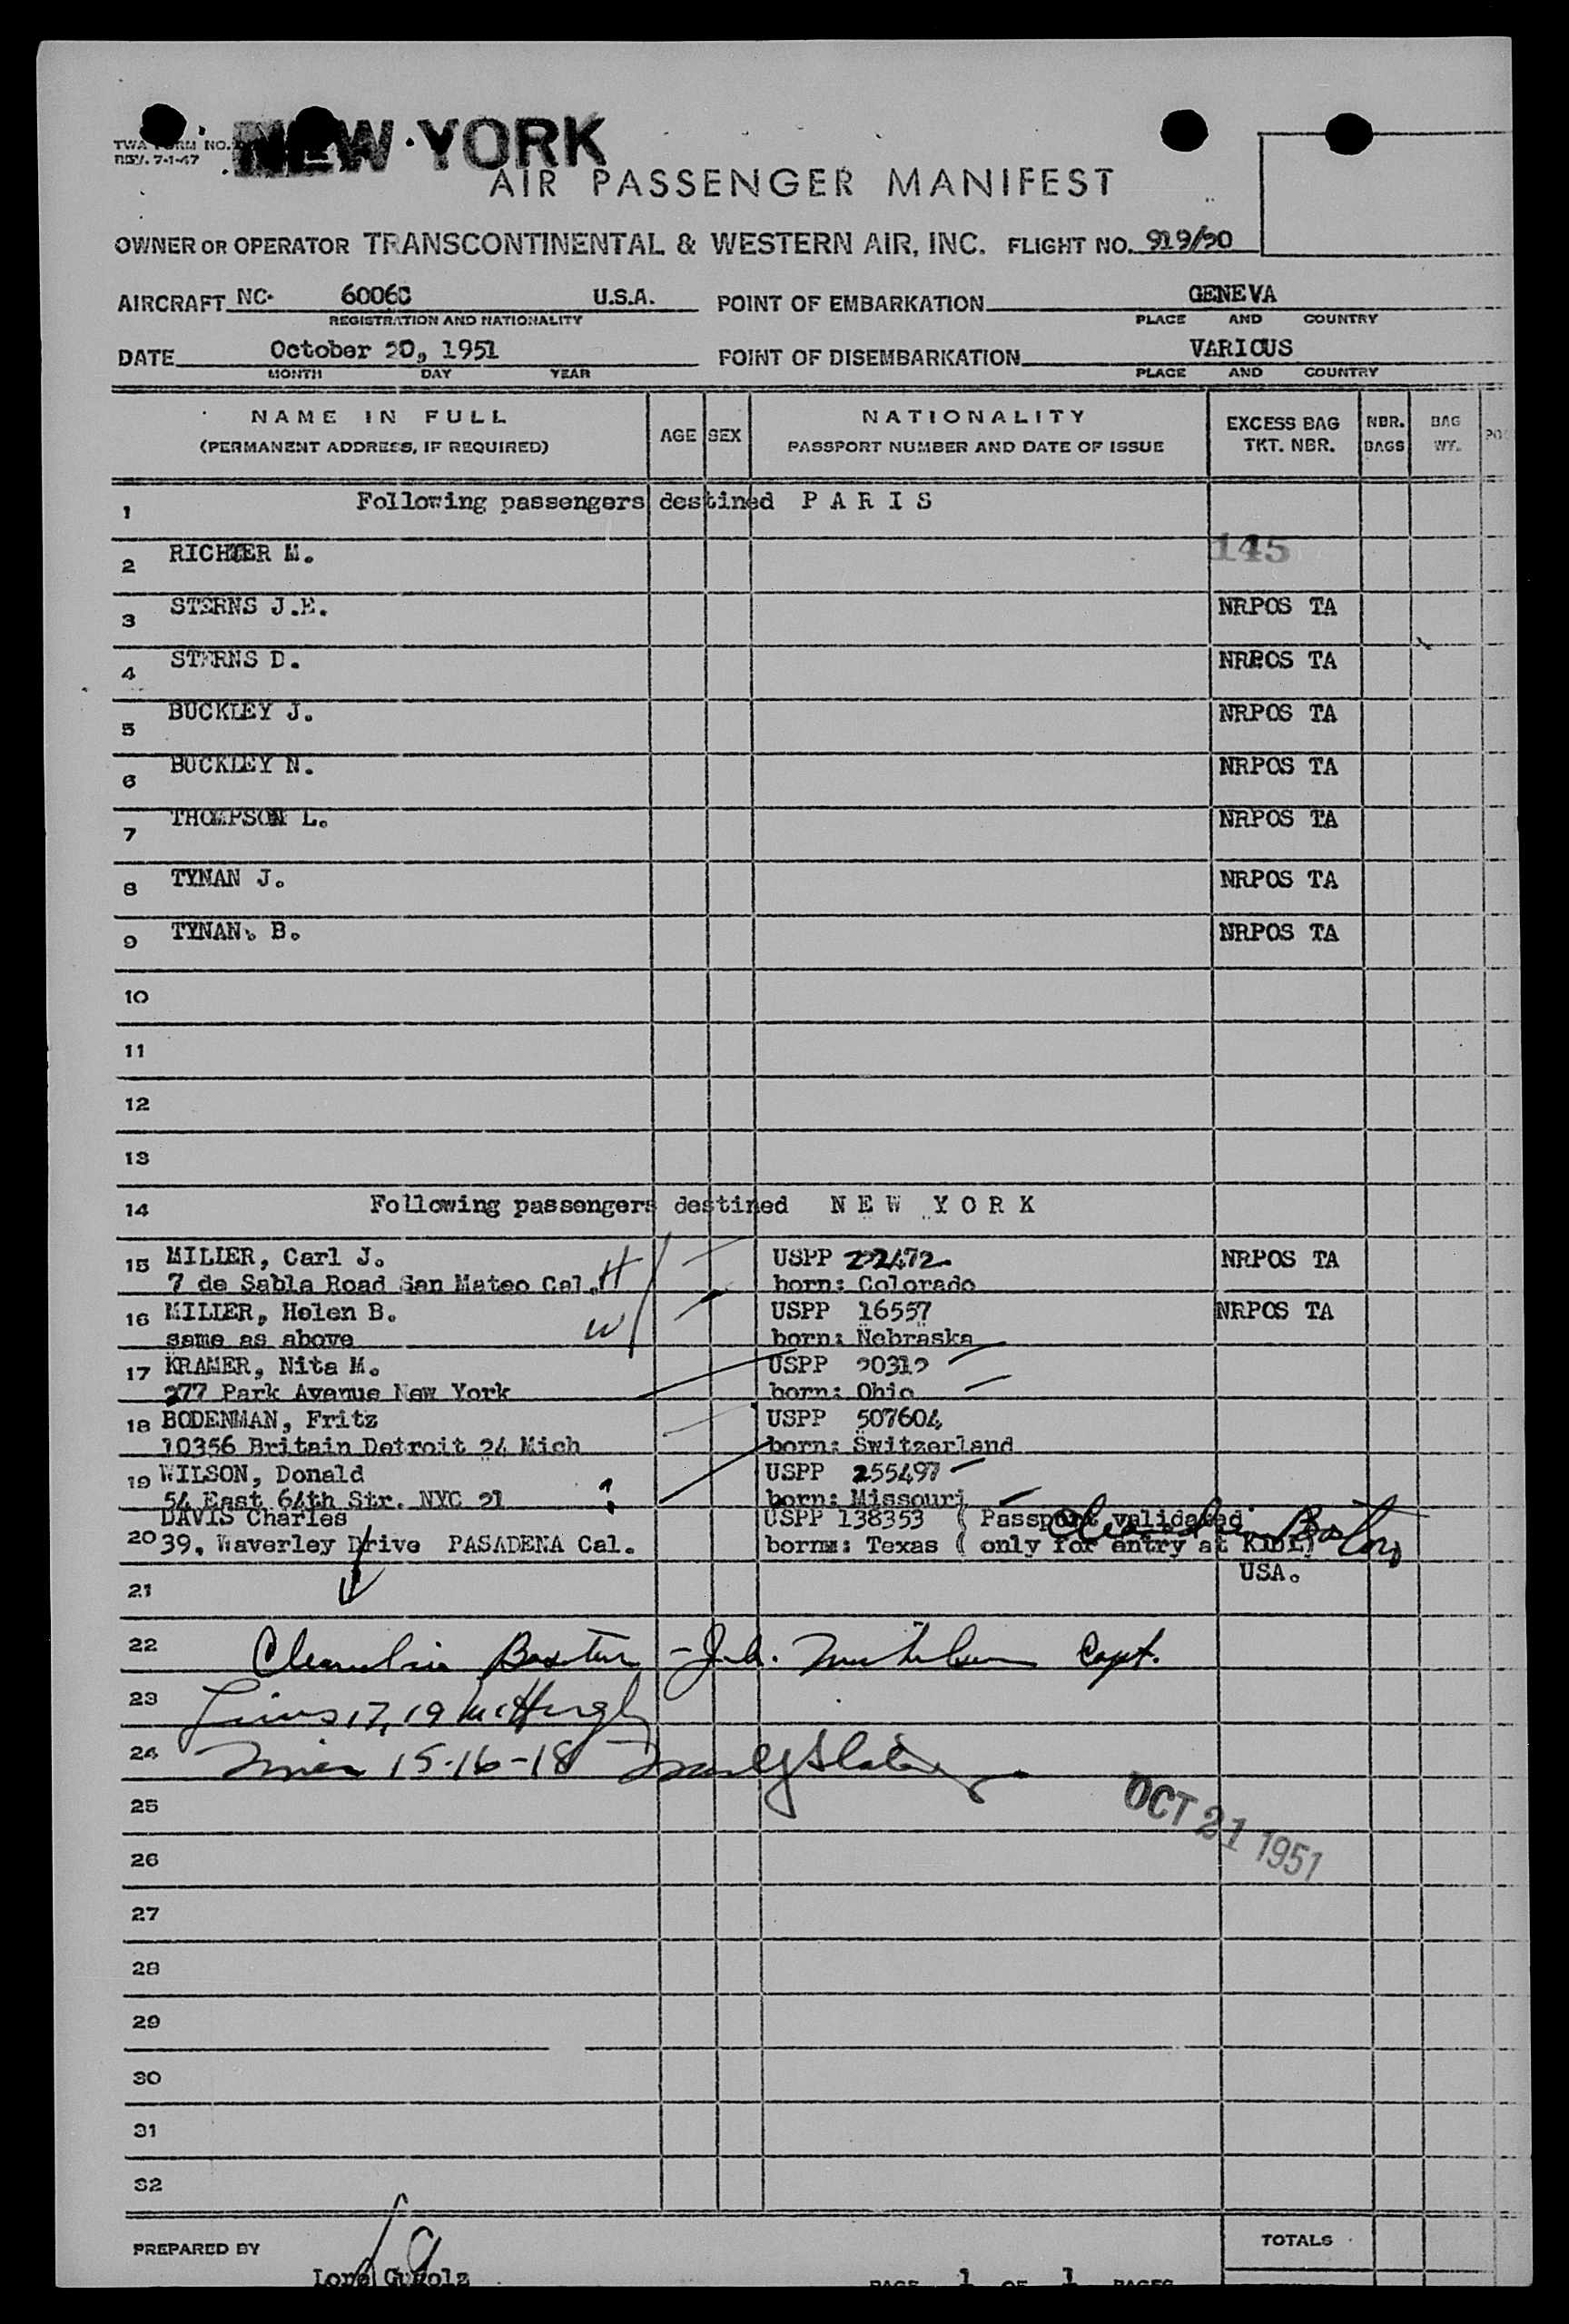 NEW YORK
TWA FORM NO.
REV. 7-1-47
AIR PASSENGER MANIFEST
OWNER OR OPERATOR TRANSCONTINENTAL & WESTERN AIR, INC. FLIGHT NO. 919/20
AIRCRAFT NC. 6006C U.S.A. POINT OF EMBARKATION GENEVA
REGISTRATION AND NATIONALITY PLACE AND COUNTRY
DATE October 20, 1951 POINT OF DISEMBARKATION VARIOUS
MONTH DAY YEAR PLACE AND COUNTRY
NAME IN FULL AGE SEX NATIONALITY EXCESS BAG NBR. BAG
(PERMANENT ADDRESS, IF REQUIRED) PASSPORT NUMBER AND DATE OF ISSUE TKT. NBR. BAGS WT.
1 Following passengers destined P A R I S
2 RICHTER M. 145
3 STERNS J.E. NRPOS TA
4 STERNS D. NRPOS TA
5 BUCKLEY J. NRPOS TA
6 BUCKLEY N. NRPOS TA
7 THOMPSON L. NRPOS TA
8 TYNAN J. NRPOS TA
9 TYNAN. B. NRPOS TA
10
11
12
13
14 Following passengers destined N E W Y O R K
15 MILLER, Carl J. H USPP 222472 NRPOS TA
7 de Sabla Road San Mateo Cal. born: Colorado
16 MILLER, Helen B. W USPP 16557 NRPOS TA
same as above born: Nebraska
17 KRAMER, Nita M. USPP 20312
277 Park Avenue New York born: Ohio
18 BODENMAN, Fritz USPP 507604
10356 Britain Detroit 24 Mich born: Switzerland
19 WILSON, Donald USPP 255497
54 East 64th Str. NYC 21 born: Missouri
DAVIS Charles USPP 138353 ( Passport validated
20 39, Waverley Drive PASADENA Cal. born: Texas ( only for entry at
21 USA.
22 Baxter Capt.
23 Lines 17, 19
24 Lines 15-16-18
25 OCT 21 1951
26
27
28
29
30
31
32
PREPARED BY TOTALS
PAGE 1 OF 1 PAGES